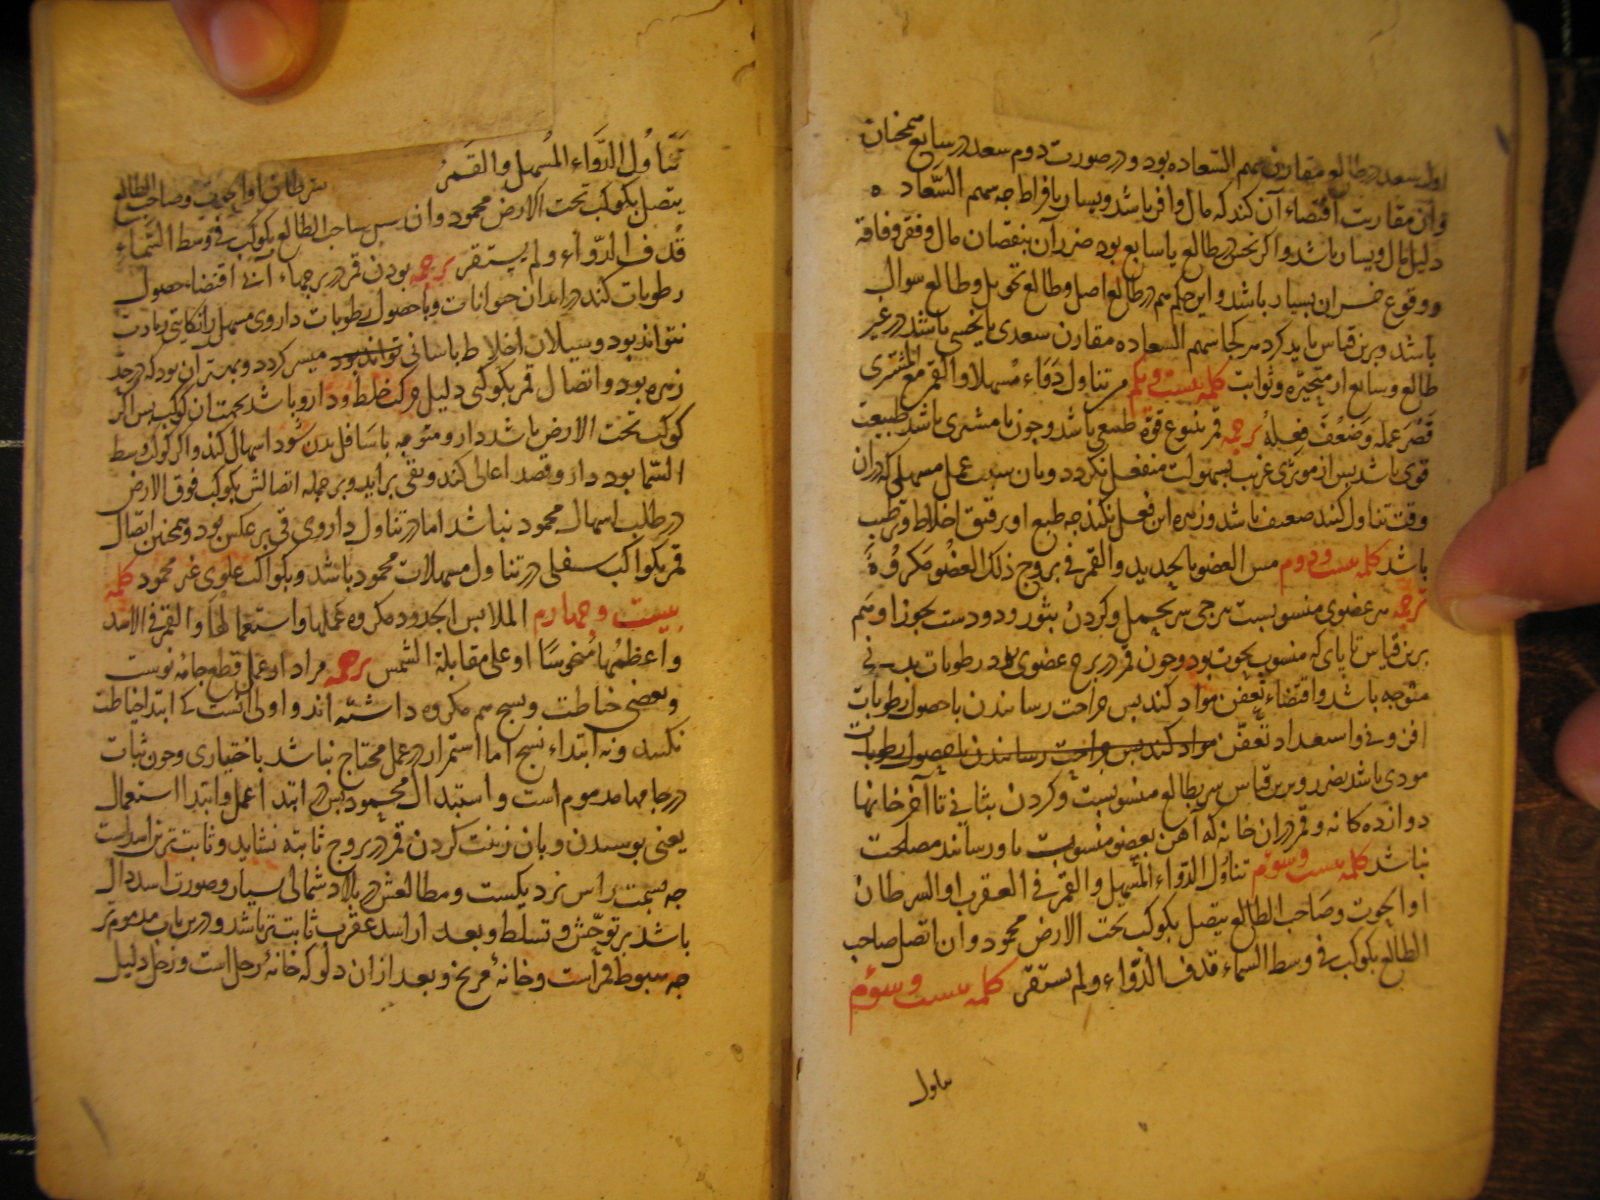 اول سعد در طالع مقارن سهم السعاده بود و در صورت دوم سعد در سابع همچنان
و ان مقارنت اقتضاء آن کند که مال وافر باشد و یسار بافراط چه سهم السعاده
دلیل مال و یسار باشد و اگر نحس در طالع یا سابع بود ضرر آن بنقصان مال و فقر و فاقه
و وقوع خسران بسیار باشد و این حکم هم در طالع اصل و طالع تحویل و طالع سوال
باشد و برین قیاس باید کرد هر کجا سهم السعاده مقارن سعدی یا نحسی باشد در غیر
طالع و سابع از متحیره و ثوابت کلمه بیست و یکم من تناول دواء مسهلا و القمر مع المشتری
قصر عمله و ضعف فعله ترجمه قمر ینبوع قوة طبیعی باشد و چون با مشتری باشد طبیعت
قوی باشد پس از موثری غریب بسهولت منفعل نگردد و بان سبب عمل مسهلی که در ان
وقت تناول کنند ضعیف باشد و زهره این فعل نکند چه طبع او ترقیق اخلاط و ترطیب
باشد کلمه بیست و دوم مس العضو بالحدید و القمر فی بروج ذلک العضو مکروه
ترجمه هر عضوی منسوبست ببرجی سر بحمل و گردن بثور و دو دست بجوزا و هم
برین قیاس تا پای که منسوب بحوت بود و چون قمر در برج عضوی بود رطوبات بدنی
متوجه باشد و اقتضاء تعفن مواد کند پس جراحت رسانیدن با حصول رطوبات
افزونی و استعداد تعفن مواد کند پس جراحت رسانیدن با حصول رطوبات
مودی باشد بضرر و برین قیاس سر بطالع منسوبست و گردن بثانی تا آخر خانها
دوازده گانه و قمر در ان خانه که آهن بعضو منسوب باو رسانند مصلحت
نباشد کلمه بیست و سوم تناول الدواء المسهل و القمر فی العقرب او السرطان
او الحوت و صاحب الطالع یتصل بکوکب تحت الارض محمود و ان اتصل صاحب
الطالع بکوکب فی وسط السماء قذف الدواء و لم یستقر کلمه بیست و سوم
تناول
تناول الدواء المسهل و القمر سرطان او الحوت و صاحب الطالع
یتصل بکوکب تحت الارض محمود و ان صاحب الطالع بکوکب فی وسط السماء
قذف الدواء و لم یستقر ترجمه بودن قمر در برجهاء آبی اقتضاء حصول
رطوبات کند در ابدان حیوانات و با حصول رطوبات داروی مسهل را نکایتی زیادت
نتواند بود و سیلان اخلاط باسانی تواند بود میسر گردد و بهتر ان بود که در حد
زهره بود و اتصال قمر بکوکبی دلیل حرکت خلط و دارو باشد بجهت ان کوکب پس اگر
کوکب تحت الارض باشد دارو متوجه باسافل بدن شود اسهال کند و اگر کوکب وسط
السما بود دارو قصد اعالی کند و بقی براید و بر جمله اتصالش بکوکب فوق الارض
در طلب اسهال محمود نباشد اما در تناول داروی قی بر عکس بود و همچنین اتصال
قمر بکواکب سفلی در تناول مسهلات محمود باشد و بکواکب علوی غیر محمود کلمه
بیست و چهارم الملابس الجدود مکروه عملها و استعمالها و القمر فی الاسد
و اعظمها منحوسا او علی مقابلة الشمس ترجمه مراد از عمل قطع جامه نوست
و بعضی خیاطت و نسج هم مکروه داشته اند و اولی انست که ابتداء خیاطت
نکنند و نه ابتداء نسج اما استمرار در عمل محتاج نباشد باختیاری و چون ثبات
در جامها مذموم است و استبدال محمود پس در ابتداء عمل و ابتدا استعمال
یعنی پوسیدن و بان زینت کردن قمر در بروج ثابته نشاید و ثابت ترین اسد است
چه بسمت راس نزدیکست و مطالعش در بلاد شمالی بسیار و صورت اسد دال
باشد بر توحش و تسلط و بعد از اسد عقرب ثابت تر باشد و درین باب مذموم تر
چه هبوط قمر است و خانهٔ مریخ و بعد از ان دلو که خانهٔ زحل است و زحل دلیل